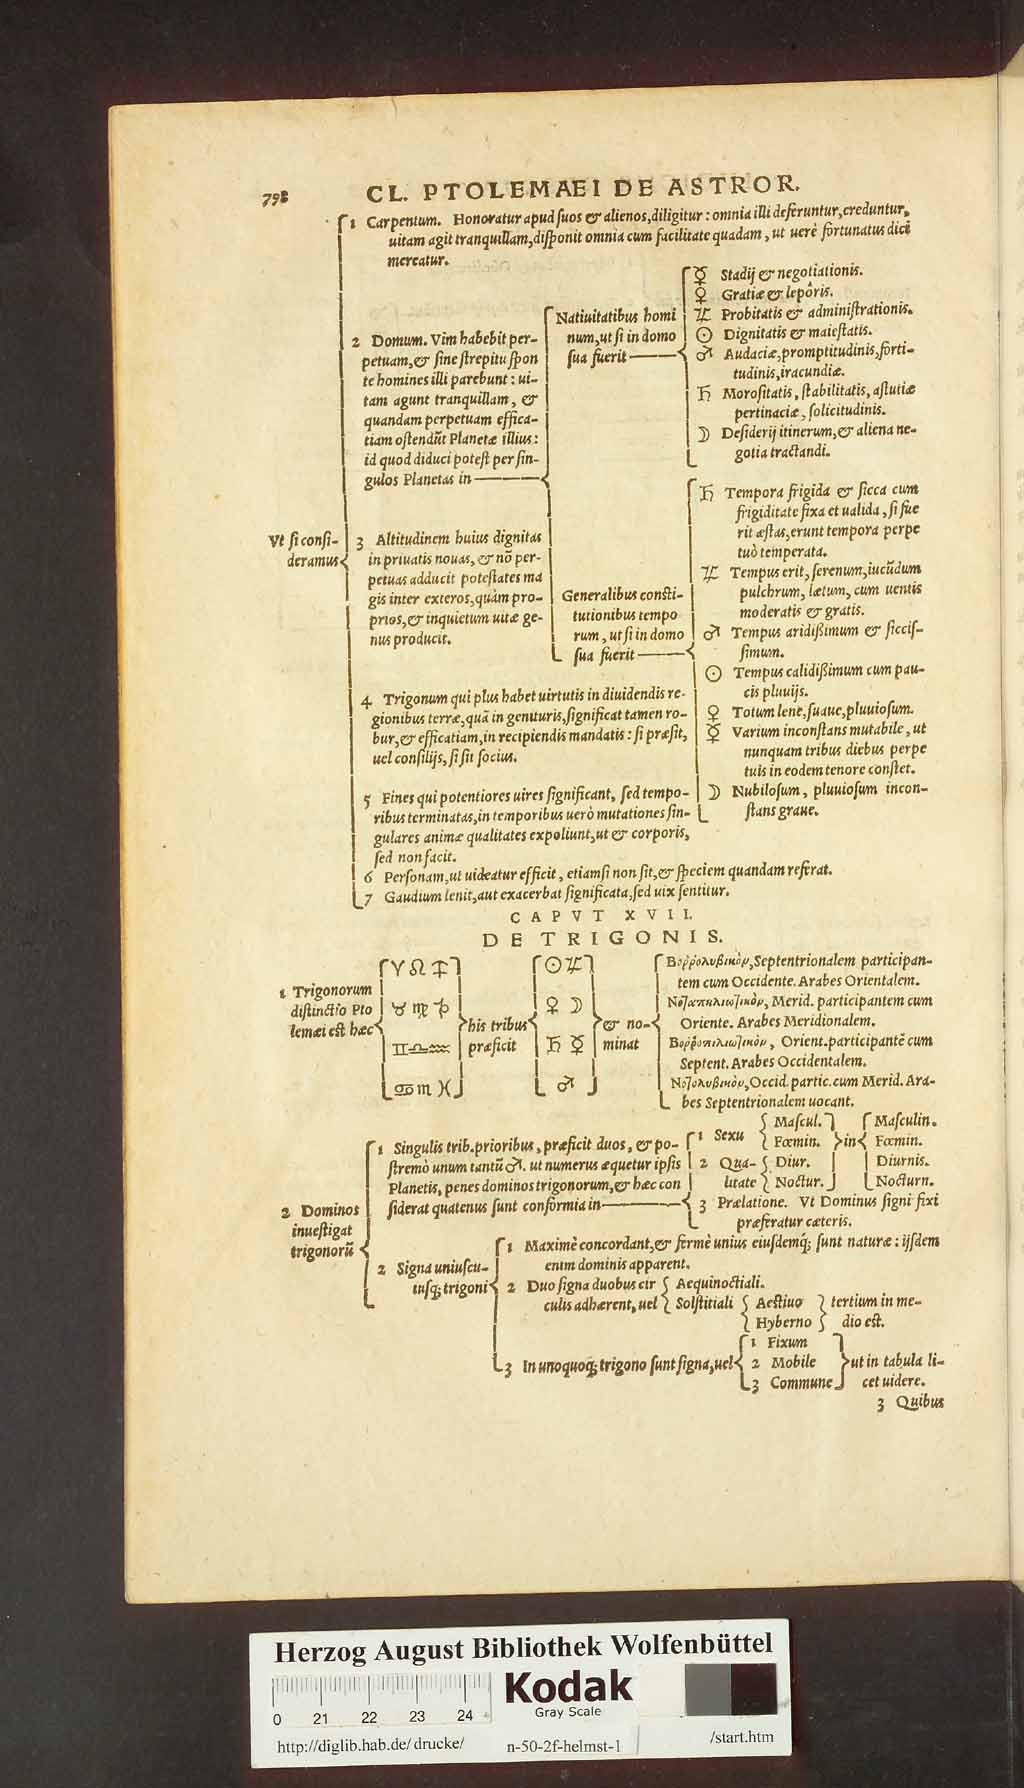 798 CL. PTOLEMAEI DE ASTROR.
1 Carpentum. Honoratur apud suos & alienos, diligitur: omnia illi deferuntur, creduntur,
uitam agit tranquillam, disponit omnia cum facilitate quadam, ut uerè fortunatus dici
mereatur.
Vt si consi-
deramus
2 Domum. Vim habebit per-
petuam, & sine strepitu spon
te homines illi parebunt: ui-
tam agunt tranquillam, &
quandam perpetuam effica-
tiam ostendūt Planetæ illius:
id quod diduci potest per sin-
gulos Planetas in
Natiuitatibus homi
num, ut si in domo
sua fuerit
☿ Stadij & negotiationis.
♀ Gratiæ & lepôris.
♃ Probitatis & administrationis.
☉ Dignitatis & maiestatis.
♂ Audaciæ, promptitudinis, forti-
tudinis, iracundiæ.
♄ Morositatis, stabilitatis, astutiæ
pertinaciæ, solicitudinis.
☽ Desiderij itinerum, & aliena ne-
gotia tractandi.
Generalibus consti-
tutionibus tempo
rum, ut si in domo
sua fuerit
♄ Tempora frigida & sicca cum
frigiditate fixa et ualida, si fue
rit æstas, erunt tempora perpe
tuò temperata.
♃ Tempus erit, serenum, iucūdum
pulchrum, lætum, cum uentis
moderatis & gratis.
♂ Tempus aridißimum & siccis-
simum.
☉ Tempus calidißimum cum pau-
cis pluuijs.
♀ Totum lene, suaue, pluuiosum.
☿ Varium inconstans mutabile, ut
nunquam tribus diebus perpe
tuis in eodem tenore constet.
☽ Nubilosum, pluuiosum incon-
stans graue.
3 Altitudinem huius dignitas
in priuatis nouas, & nō per-
petuas adducit potestates ma
gis inter exteros, quàm pro-
prios, & inquietum uitæ ge-
nus producit.
4 Trigonum qui plus habet uirtutis in diuidendis re-
gionibus terræ, quā in genituris, significat tamen ro-
bur, & efficatiam, in recipiendis mandatis: si præsit,
uel consilijs, si sit socius.
5 Fines qui potentiores uires significant, sed tempo-
ribus terminatas, in temporibus uerò mutationes sin-
gulares animæ qualitates expoliunt, ut & corporis,
sed non facit.
6 Personam, ut uideatur efficit, etiamsi non sit, & speciem quandam referat.
7 Gaudium lenit, aut exacerbat significata, sed uix sentitur.
CAPVT XVII.
DE TRIGONIS.
1 Trigonorum
distinctio Pto
lemæi est hæc
♈ ♌ ♐
♉ ♍ ♑
♊ ♎ ♒
♋ ♏ ♓
his tribus
præficit
☉ ♃
♀ ☽
♄ ☿
♂
& no-
minat
Septentrionalem participan-
tem cum Occidente. Arabes Orientalem.
Merid. participantem cum
Oriente. Arabes Meridionalem.
Orient. participantē cum
Septent. Arabes Occidentalem.
Occid. partic. cum Merid. Ara-
bes Septentrionalem uocant.
2 Dominos
inuestigat
trigonorū
1 Singulis trib. prioribus, præficit duos, & po-
stremò unum tantū ♂. ut numerus æquetur ipsis
Planetis, penes dominos trigonorum, & hæc con
siderat quatenus sunt conformia in
1 Sexu
Mascul.
Fœmin.
2 Qua-
litate
Diur.
Noctur.
in
Masculin.
Fœmin.
Diurnis.
Nocturn.
3 Prælatione. Vt Dominus signi fixi
præferatur cæteris.
2 Signa uniuscu-
iusq; trigoni
1 Maximè concordant, & fermè unius eiusdemq́; sunt naturæ: ijsdem
enim dominis apparent.
2 Duo signa duobus cir
culis adhærent, uel
Aequinoctiali.
Solstitiali
Aestiuo
Hyberno
tertium in me-
dio est.
3 In unoquoq; trigono sunt signa, uel
1 Fixum
2 Mobile
3 Commune
ut in tabula li-
cet uidere.
3 Quibus
Herzog August Bibliothek Wolfenbüttel
Kodak
Gray Scale
0 21 22 23 24
http://diglib.hab.de/drucke/ n-50-2f-helmst-1 /start.htm